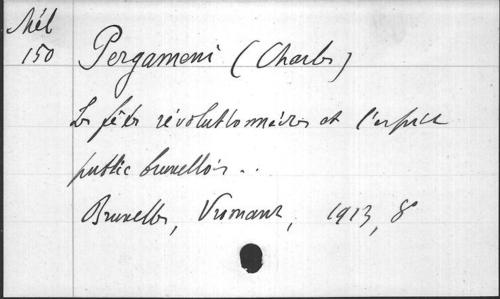 Mél
150
Pergameni (Charles)
Les fêtes révolutionnaires et l'esprit
public bruxellois..
Bruxelles, Vromant, 1913, 8°